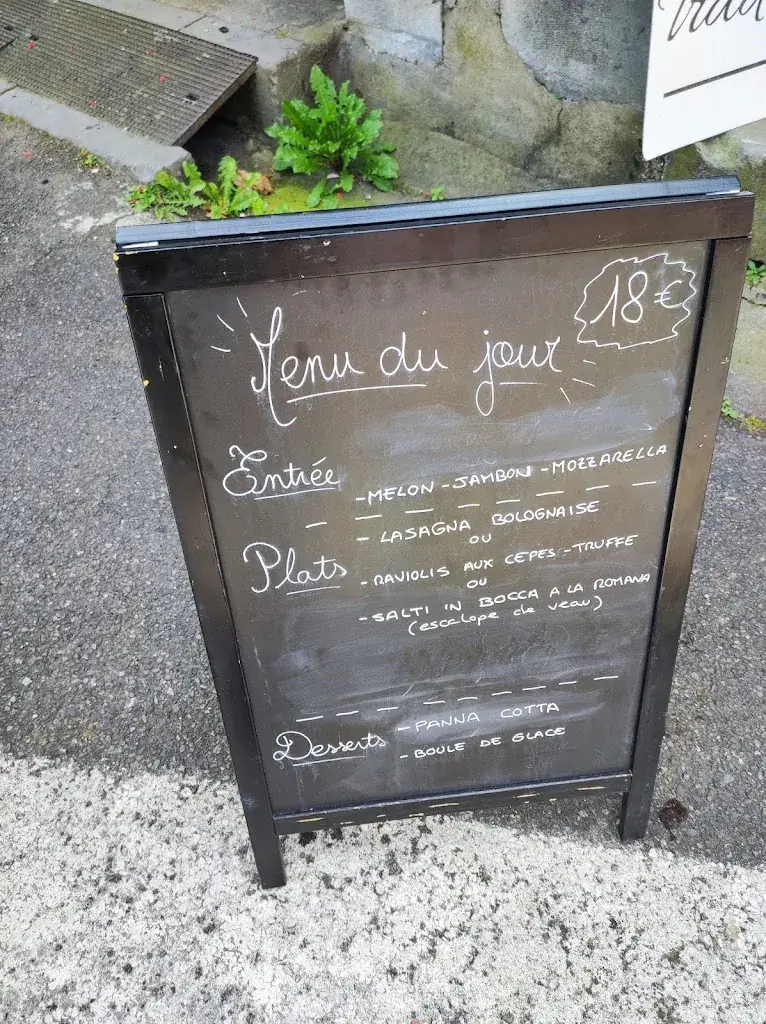 18€
Menu du jour
Entrée
- MELON - JAMBON - MOZZARELLA
- LASAGNA BOLOGNAISE
OU
Plats
- RAVIOLIS AUX CEPES - TRUFFE
OU
- SALTI IN BOCCA A LA ROMANA
(escalope de veau)
Desserts
- PANNA COTTA
- BOULE DE GLACE